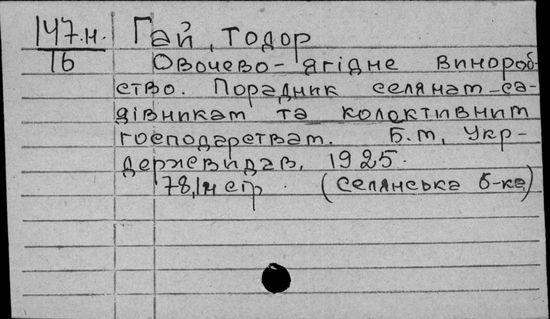 147.н. Гай, Тодор
16 Овочево-ягідне винороб-
ство. Порадник селянам-са-
дівникам та колективним
господарствам. Б.м, Укр-
державидав, 1925.
78,1н стр. (Селянська б-ка)